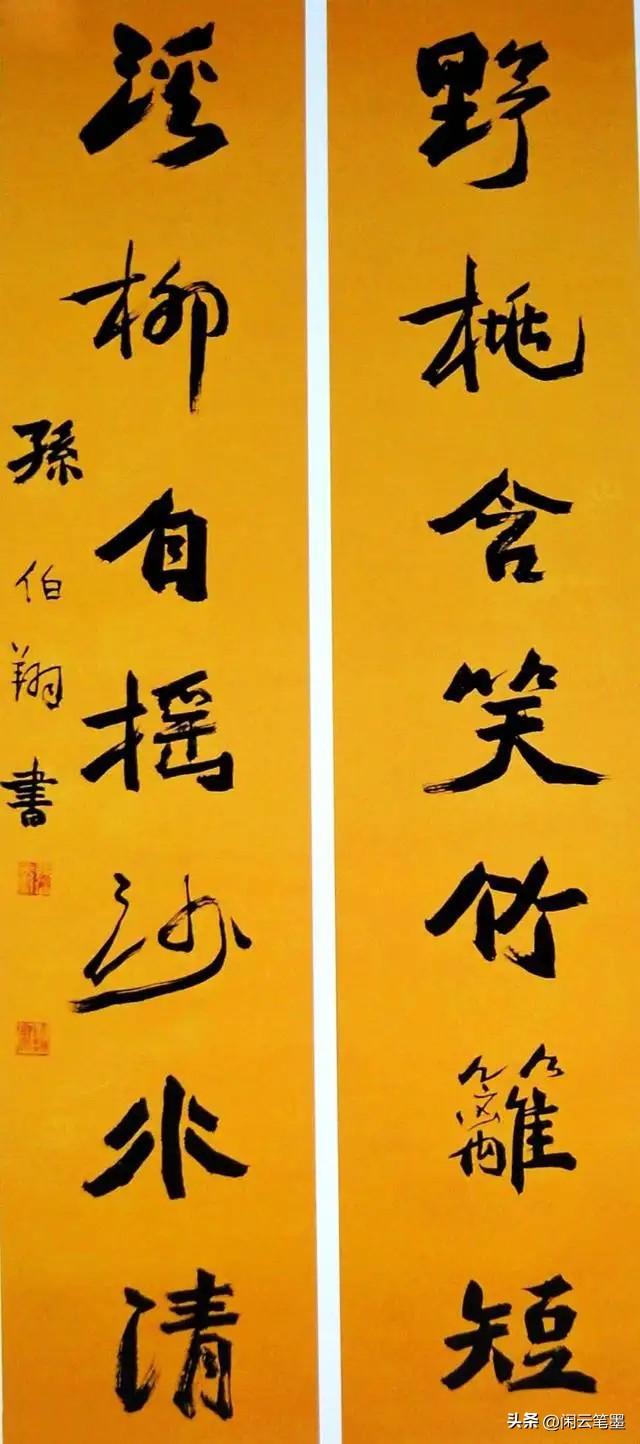 野桃含笑竹籬短
溪柳自摇沙水清
孫伯翔書
头条 @闲云笔墨